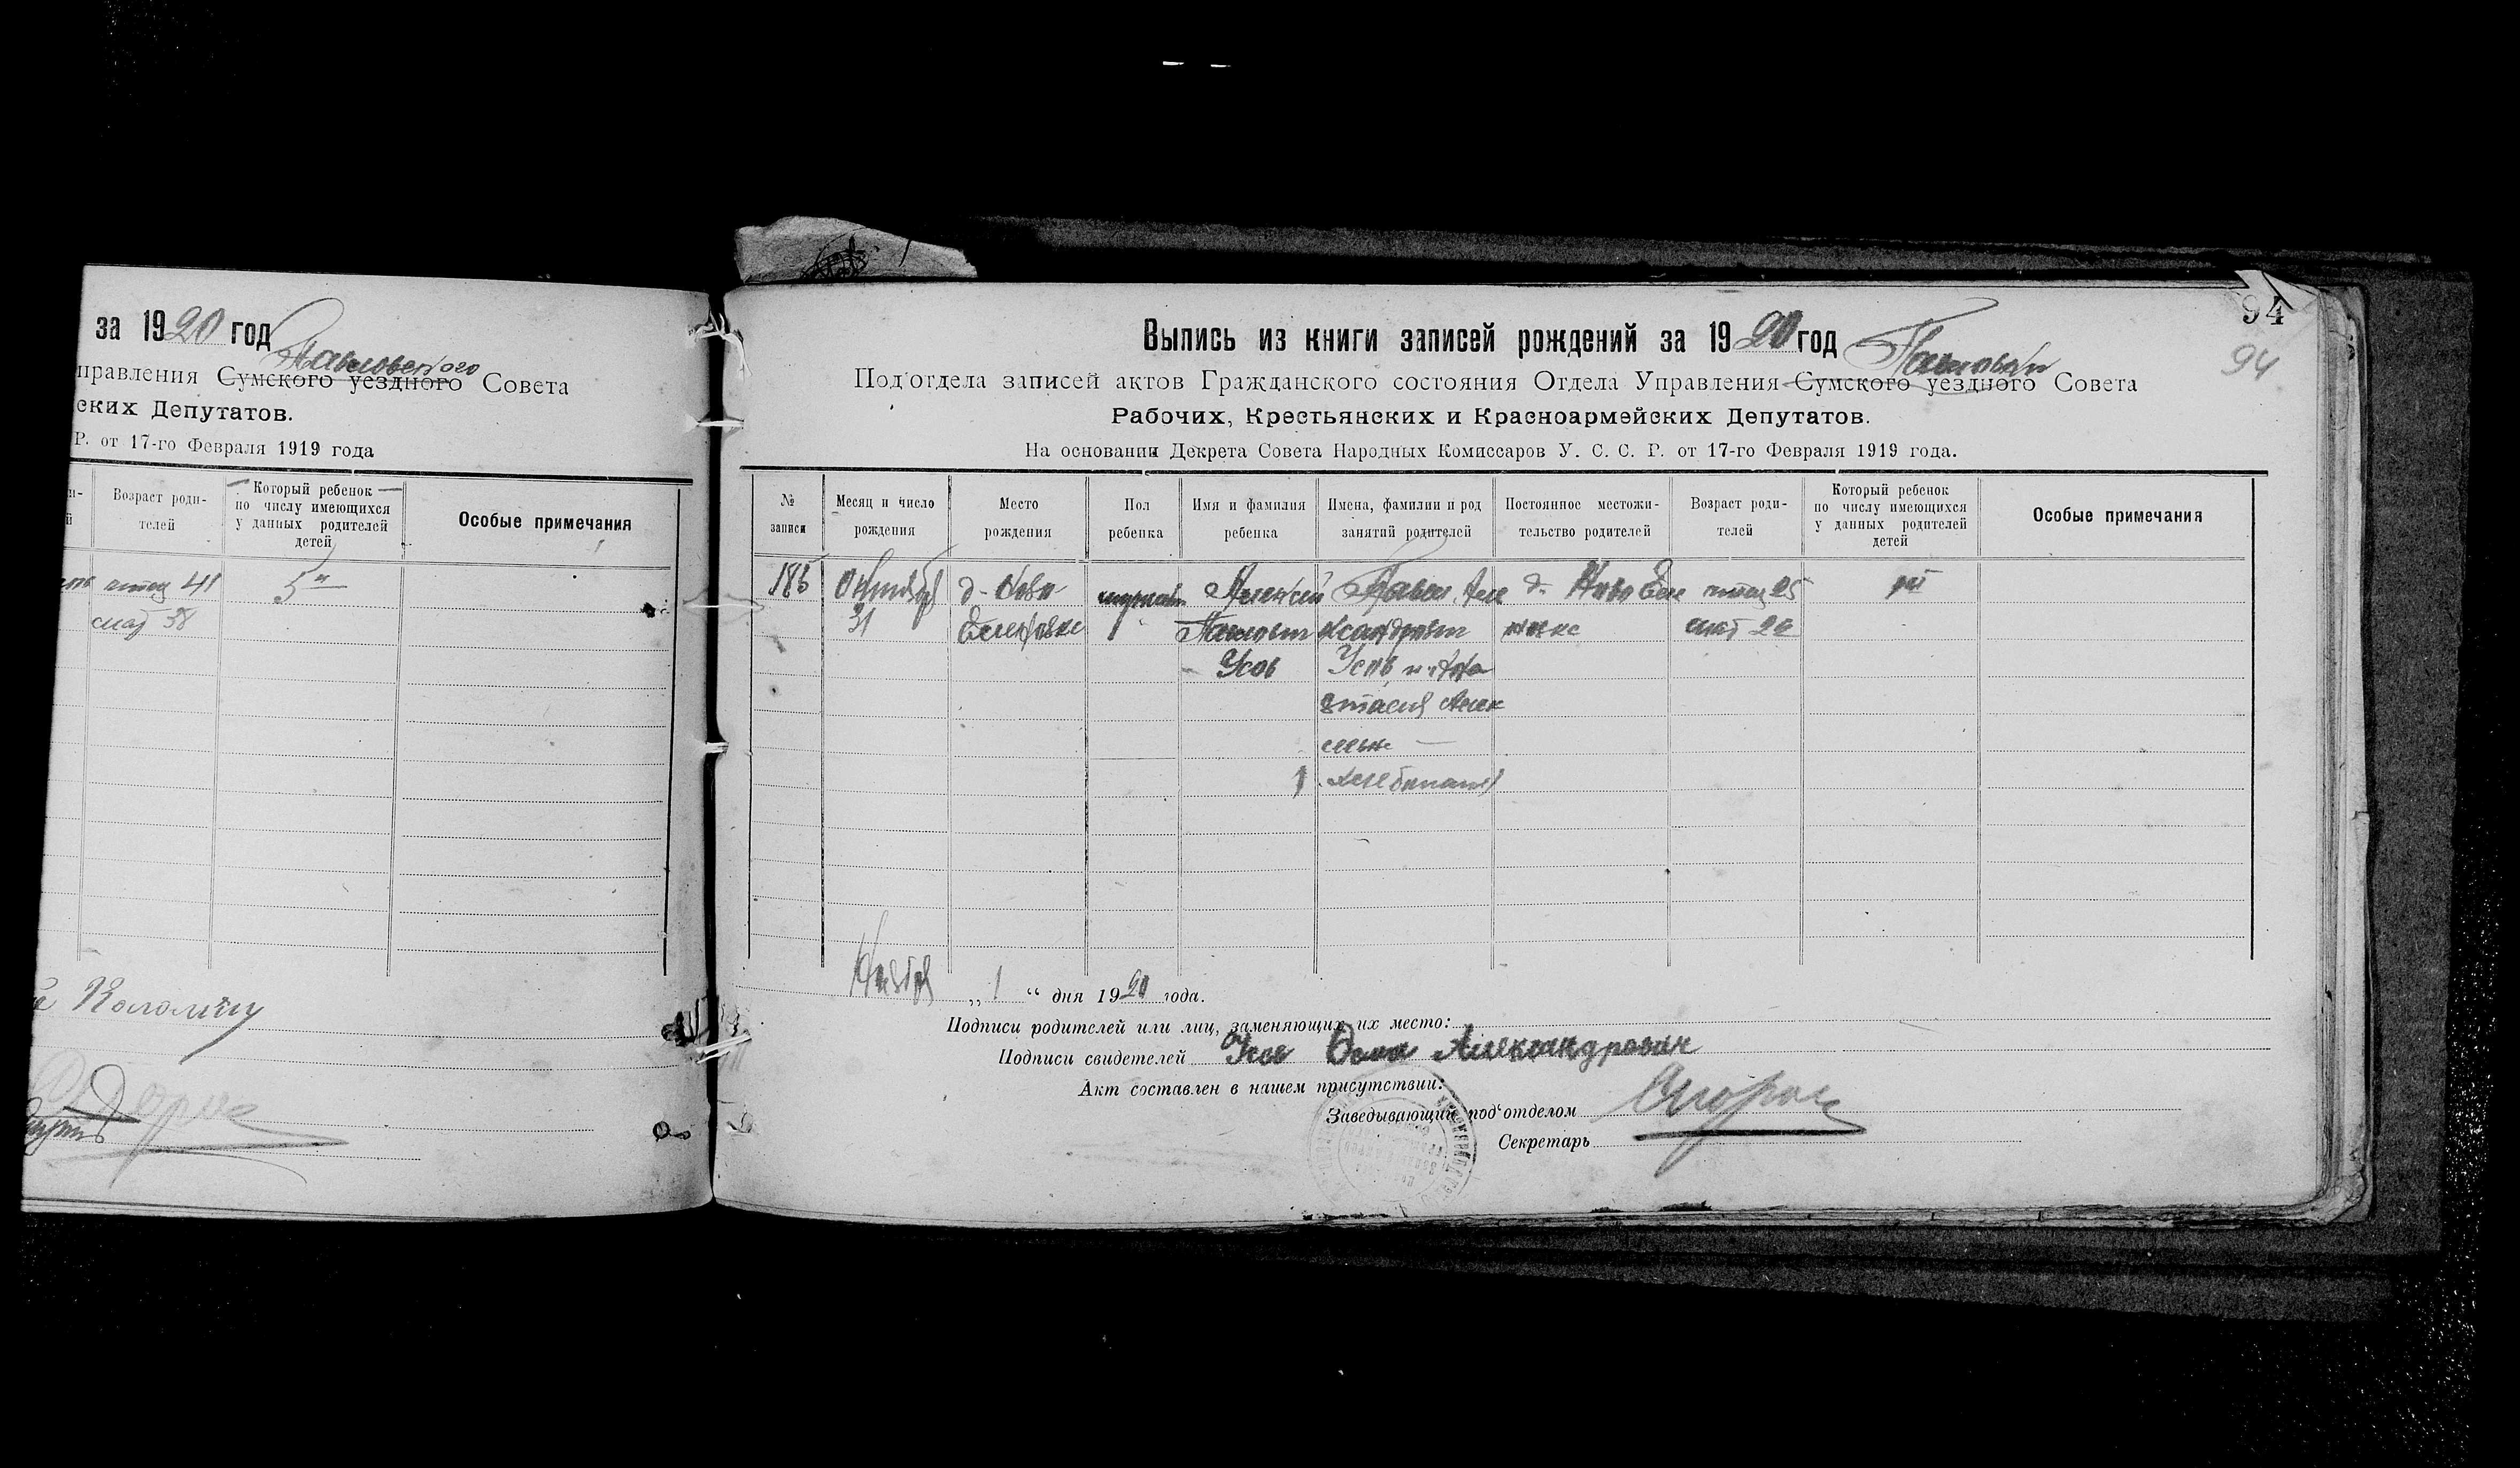 за 1920 год
Павловского
правления Сумского уездного Совета
ских Депутатов.
Р. от 17-го Февраля 1919 года
Возраст роди-
телей
Который ребенок
по числу имеющихся
у данных родителей
детей
Особые примечания
отец 41
мат 38
5
Коломиец
94
94
Выпись из книги записей рождений за 1920 год
Под'отдела записей актов Гражданского состояния Отдела Управления Сумского уездного Совета
Рабочих, Крестьянских и Красноармейских Депутатов.
На основании Декрета Совета Народных Комиссаров У. С. С. Р. от 17-го Февраля 1919 года.
№
записи
Месяц и число
рождения
Место
рождения
Пол
ребенка
Имя и фамилия
ребенка
Имена, фамилии и род
занятий родителей
Постоянное местожи-
тельство родителей
Возраст роди-
телей
Который ребенок
по числу имеющихся
у данных родителей
детей
Особые примечания
Октября
31
д. Ново
Алексей
Усов
Павел Але
ксандров
Усов и Ана
стасия Алек
хлебопаш
д. Ново
отец 25
мат
Ноября „ 1 “ дня 1920 года.
Подписи родителей или лиц, заменяющих их место:
Подписи свидетелей Усов Фома Александрович
Акт составлен в нашем присутствии:
Заведывающий под'отделом
Секретарь